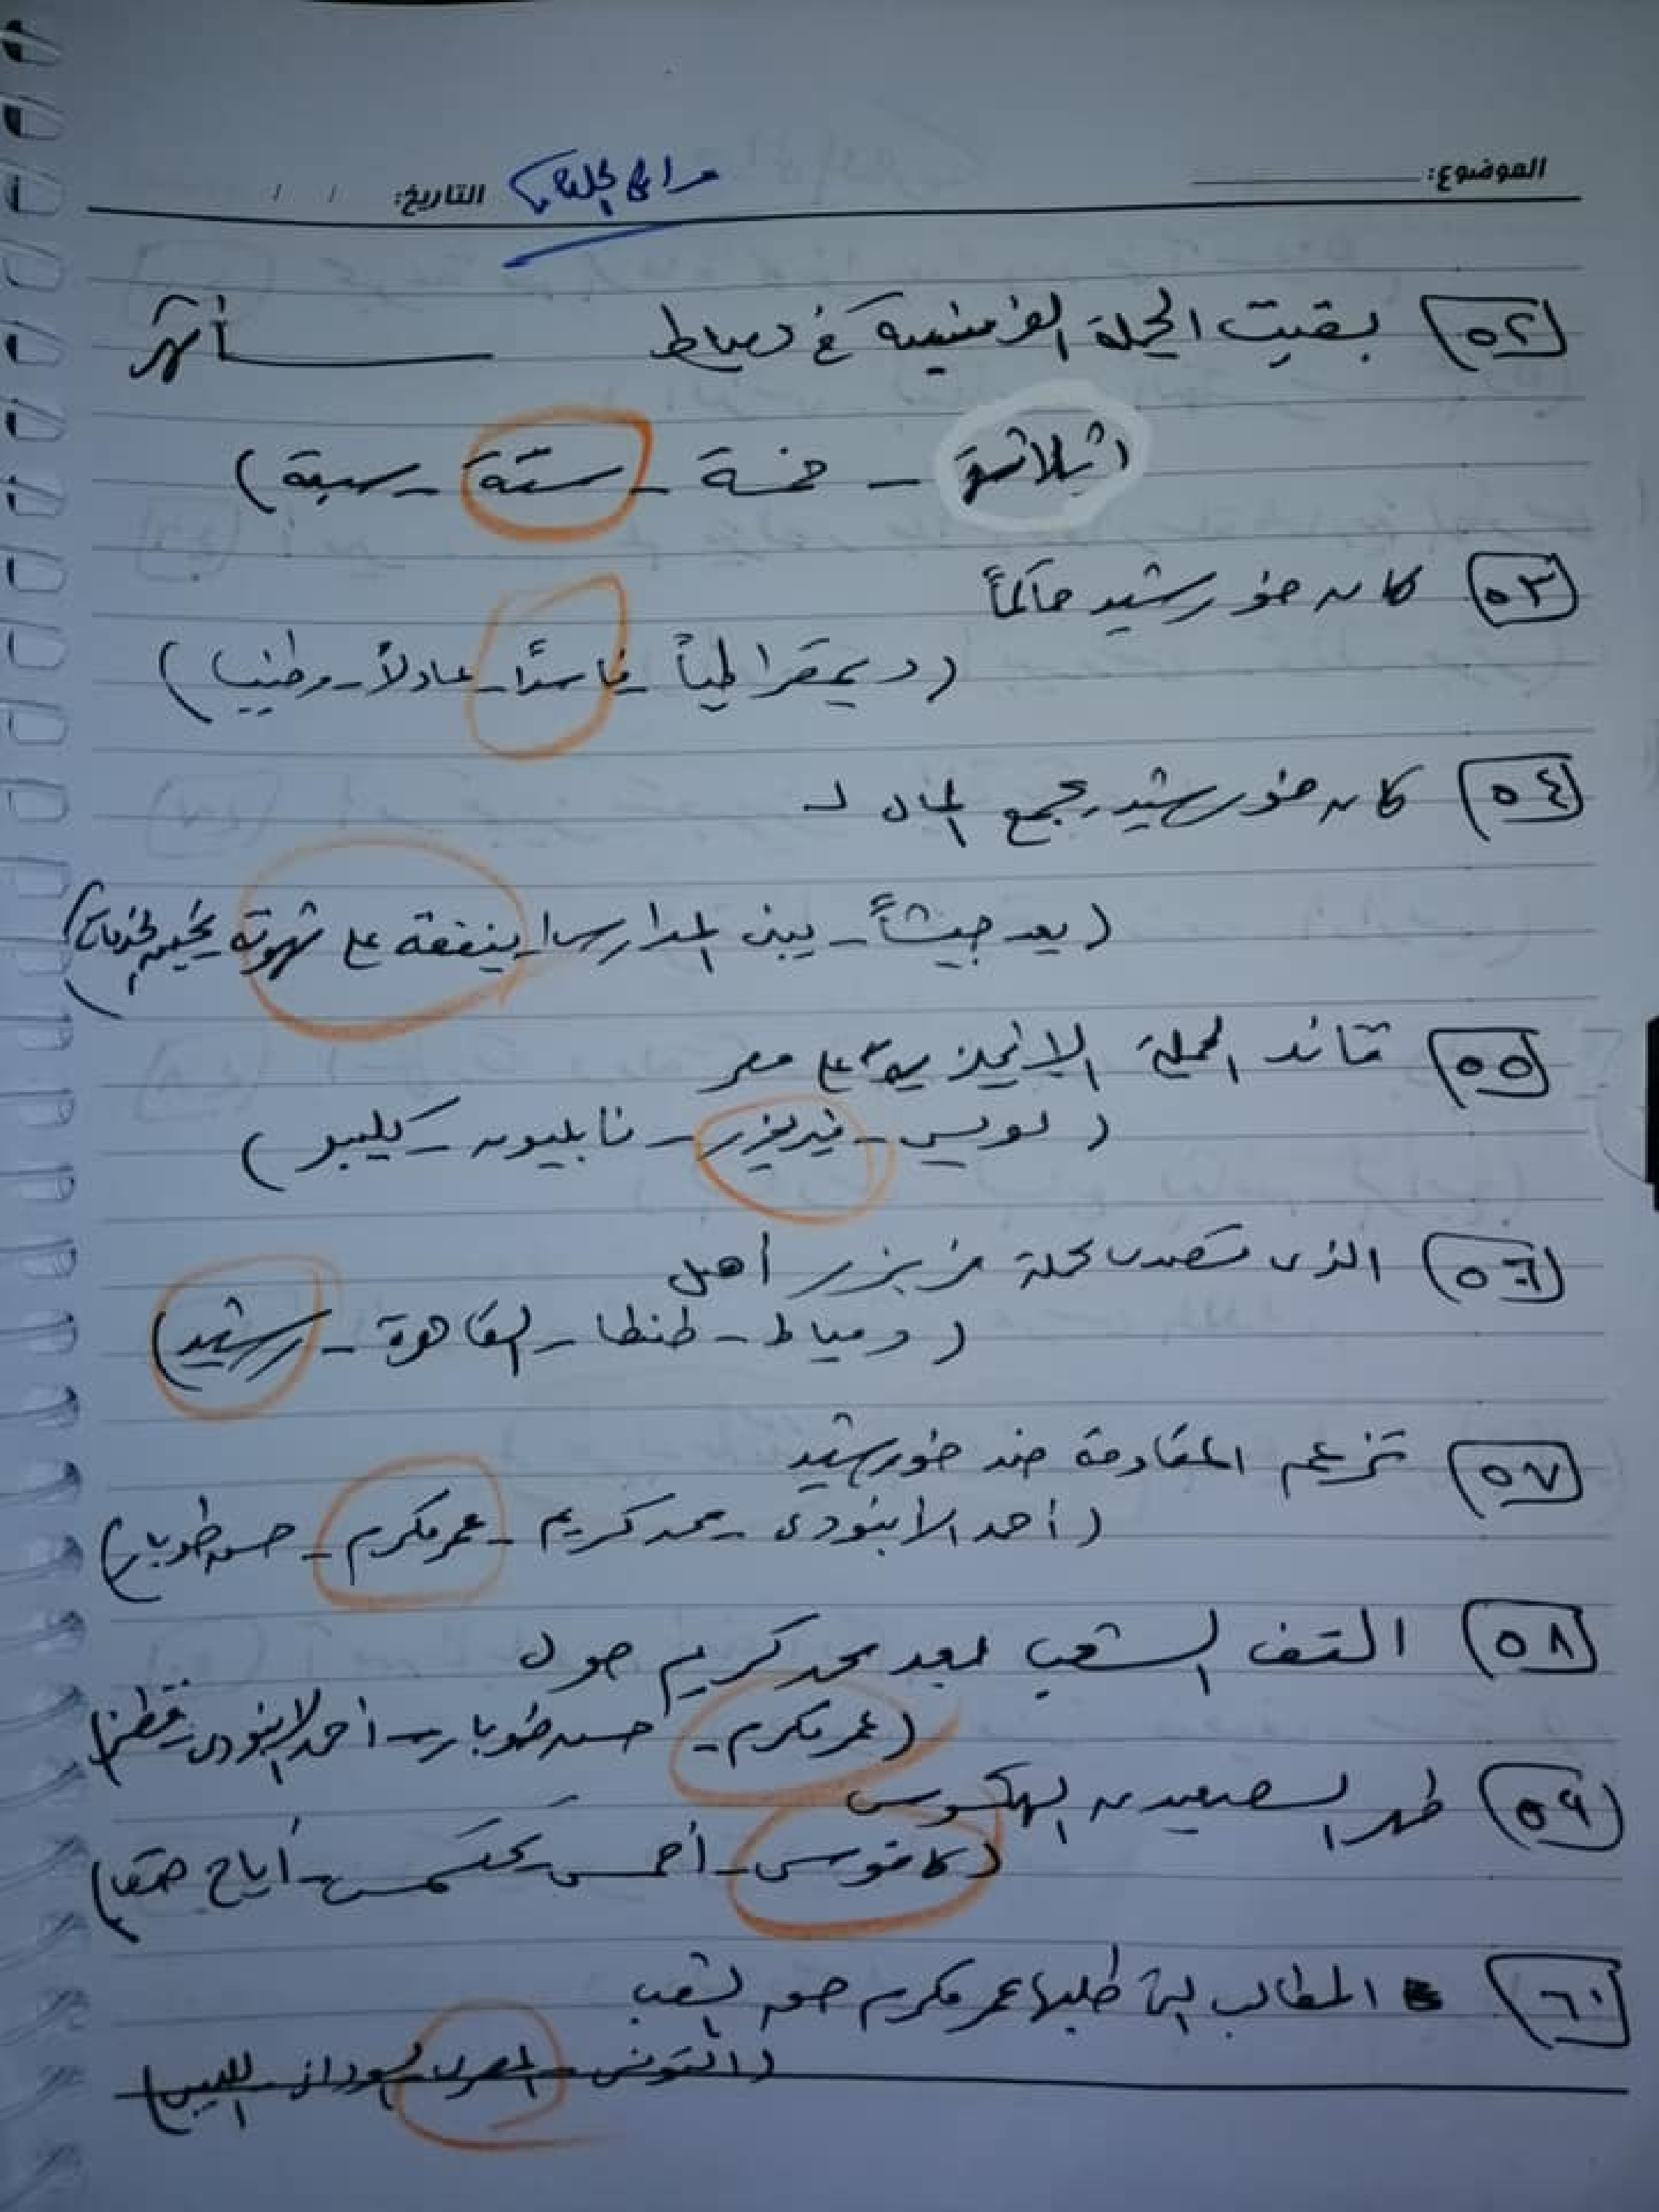 الموضوع:
التاريخ: / /
٥٢ بقيت الحملة الفرنسية فى دمياط ـــــ أشهر
(ثلاثة - خمسة - ستة - سبعة)
٥٣ كان خورشيد حاكماً
(ديمقراطياً - فاسدًا - عادلاً - وطنيا)
٥٤ كان خورشيد يجمع المال لـ
(يعد جيشاً - يبنى المدارس - ينفقه على شهوته
٥٥ قائد الحملة الإنجليزية على مصر
(لويس - فريزر - نابليون - كليبر)
٥٦ الذى تصدى لحملة فريزر أهل
(دمياط - طنطا - القاهرة - رشيد)
٥٧ تزعم المقاومة ضد خورشيد
(أحمد الابنودى - محمد كريم - عمر مكرم - حسن طوبار)
٥٨ التف الشعب بعد محمد كريم حول
(عمر مكرم - حسن طوبار - أحمد الابنودى - قطز)
٥٩ طهر الصعيد من الهكسوس
(كاموس - أحمس - تحتمس - أياح حتب)
٦٠ المطالب التى طلبها عمر مكرم حق الشعب
(التونسى - المصرى - السودانى - الليبى)